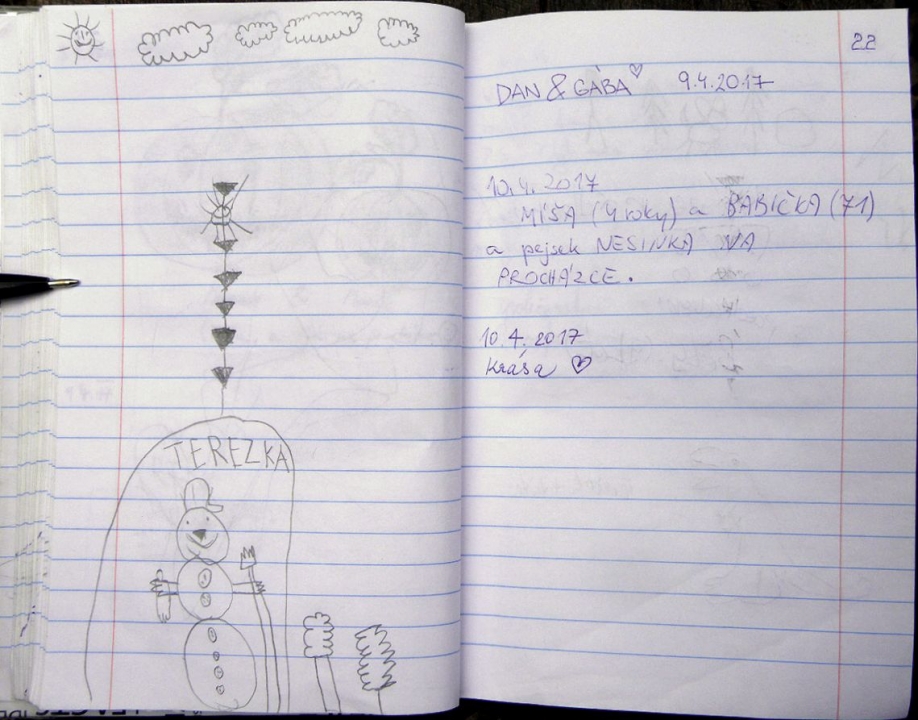 TEREZKA
22
DAN & GÁBA ♡ 9.4.2017
10.4.2017
MÍŠA (4 roky) a BABIČKA (71)
a pejsek NESINKA NA
PROCHÁZCE.
10.4.2017
Krása ♡